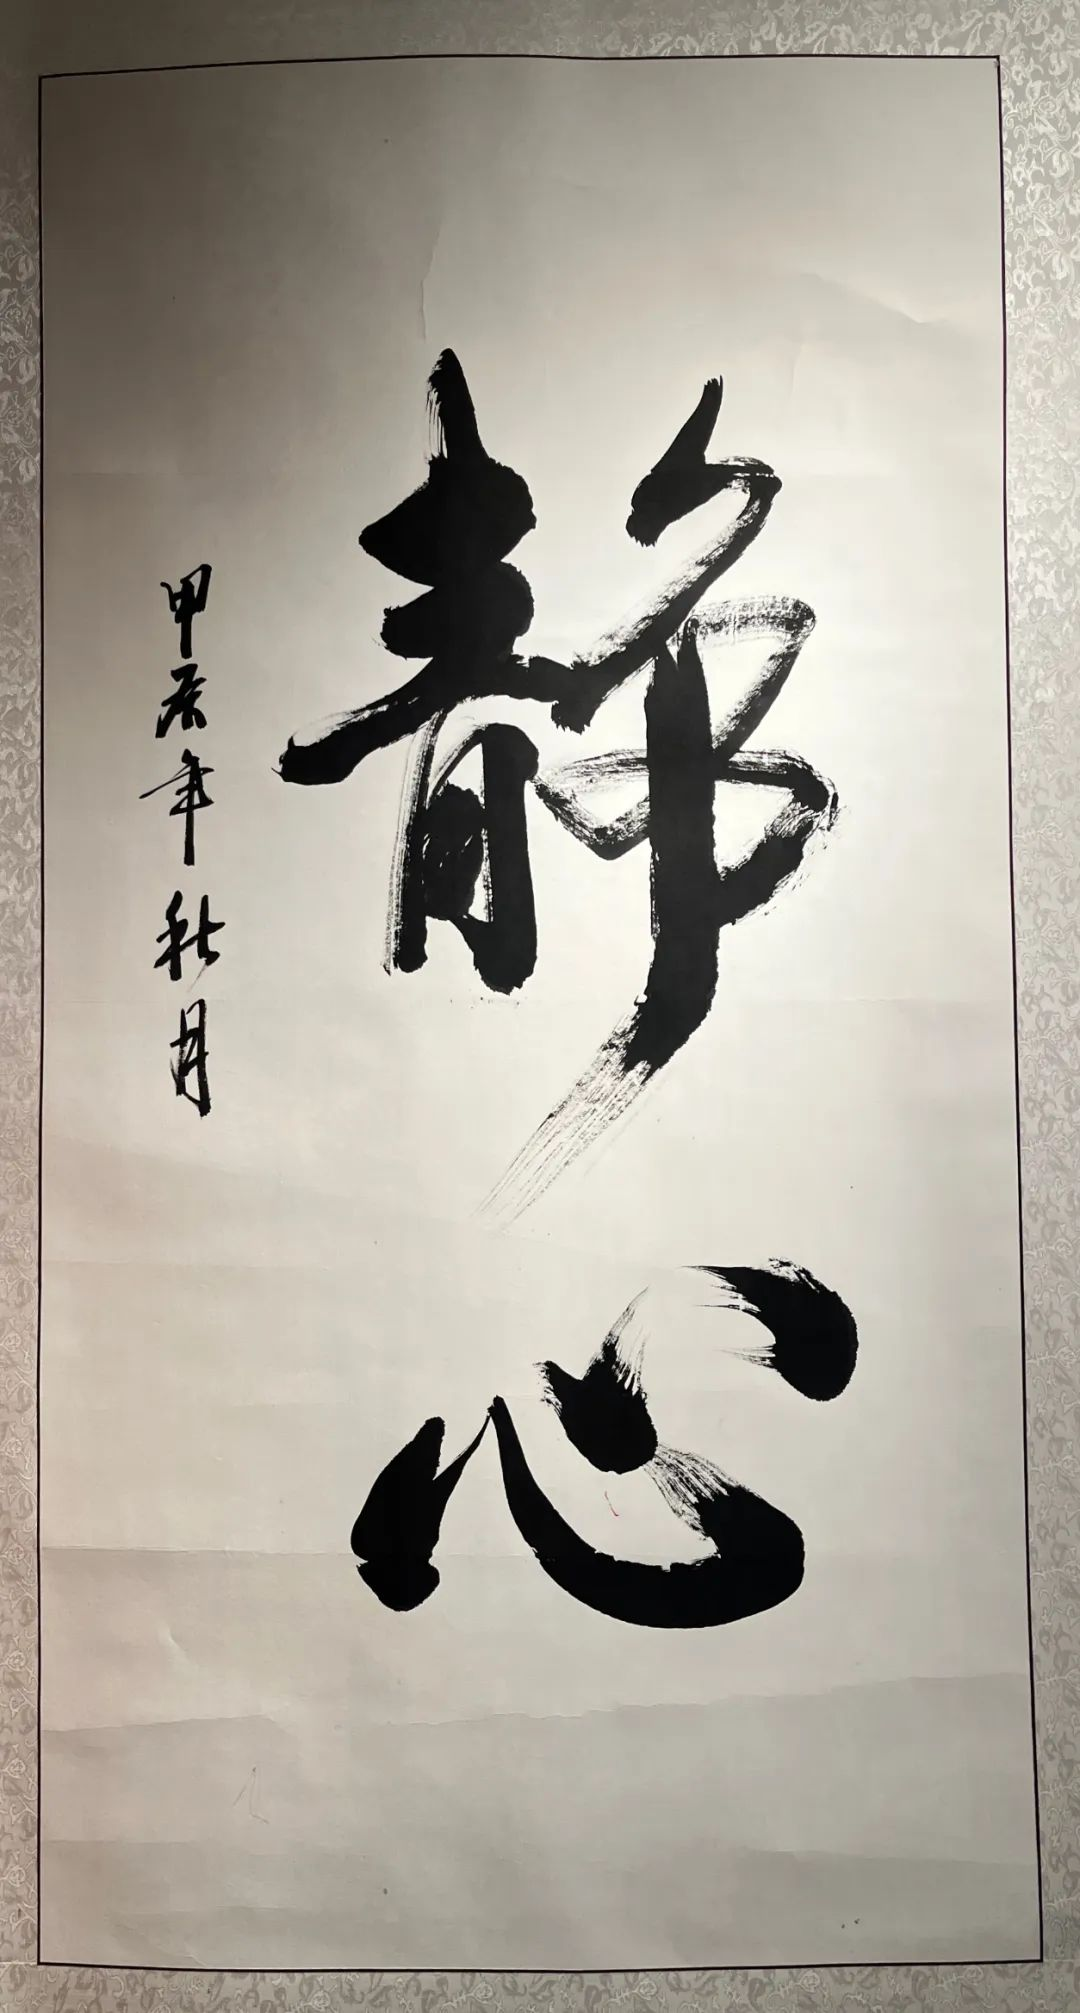 静心
甲辰年秋月